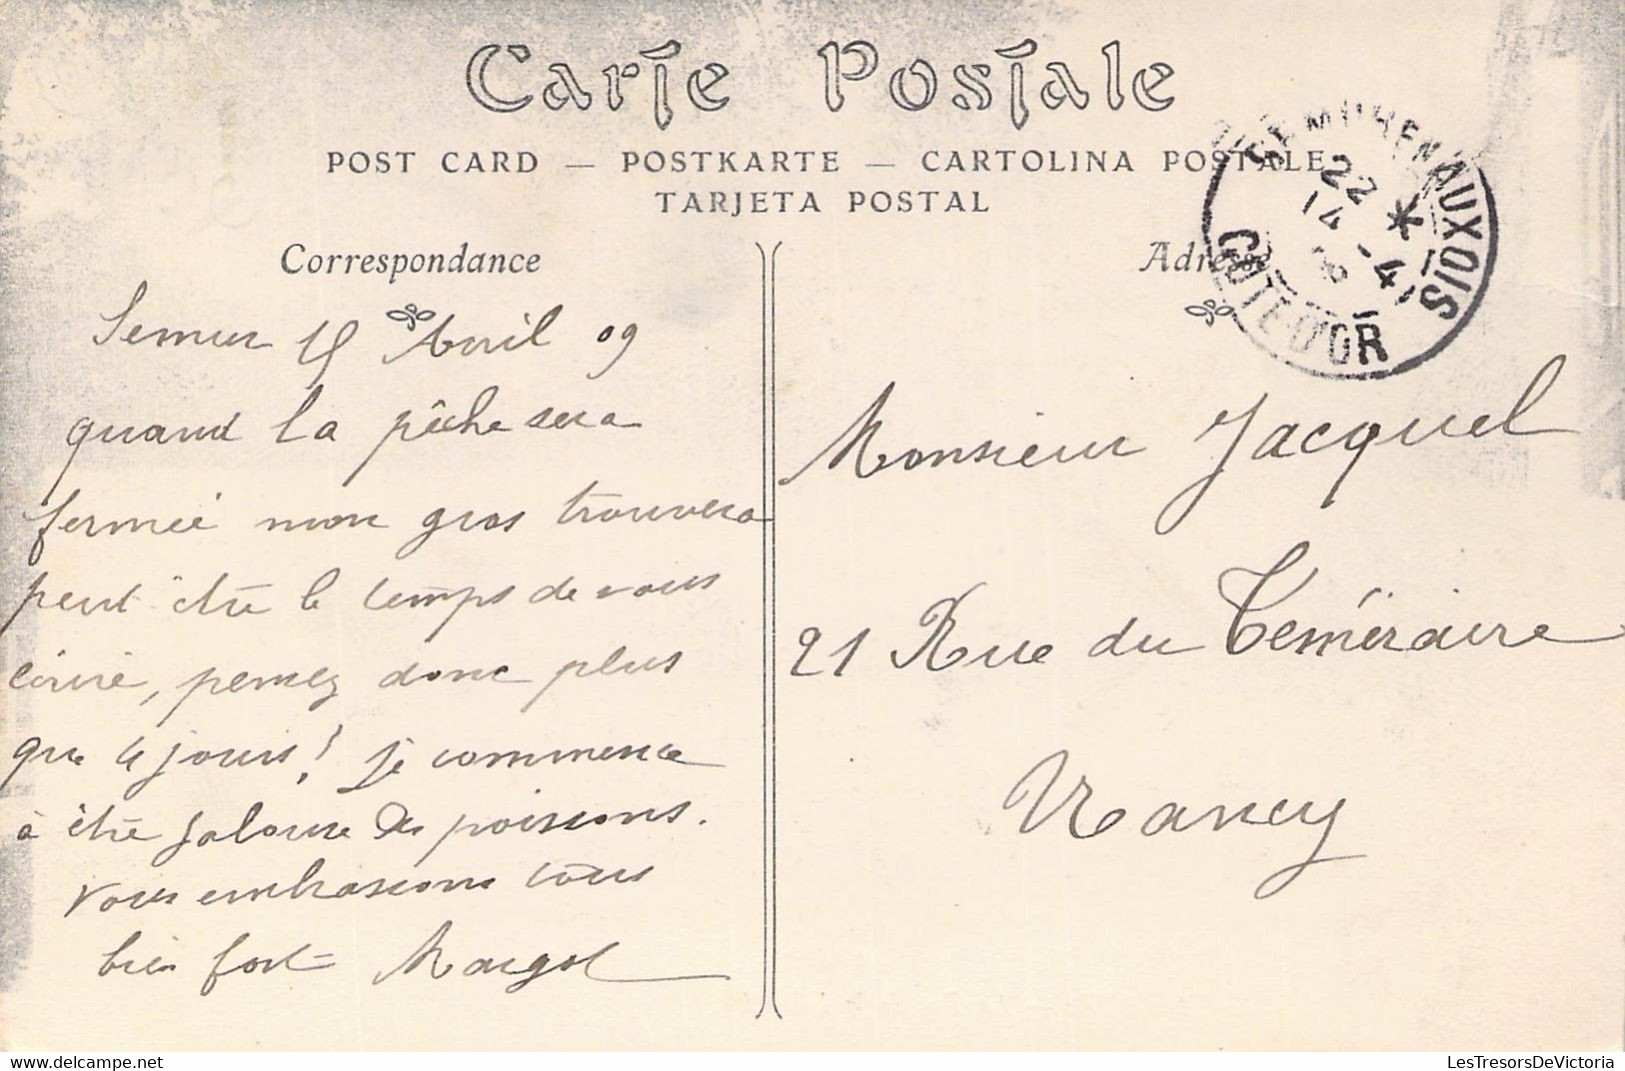 Carte Postale
POST CARD — POSTKARTE — CARTOLINA POSTALE
TARJETA POSTAL
Correspondance
Semur 15 Avril 09
quand la pêche sera
fermée mon gros trouvera
peut être le temps de vous
écrire, pensez donc plus
que 4 jours! je commence
à être jalouse des poissons.
Vous embrassons tous
bien fort Margot
Adresse
SEMUR EN AUXOIS
22 *
14 -4
COTE D'OR
Monsieur Jacquel
21 Rue du Téméraire
Nancy
LesTresorsDeVictoria